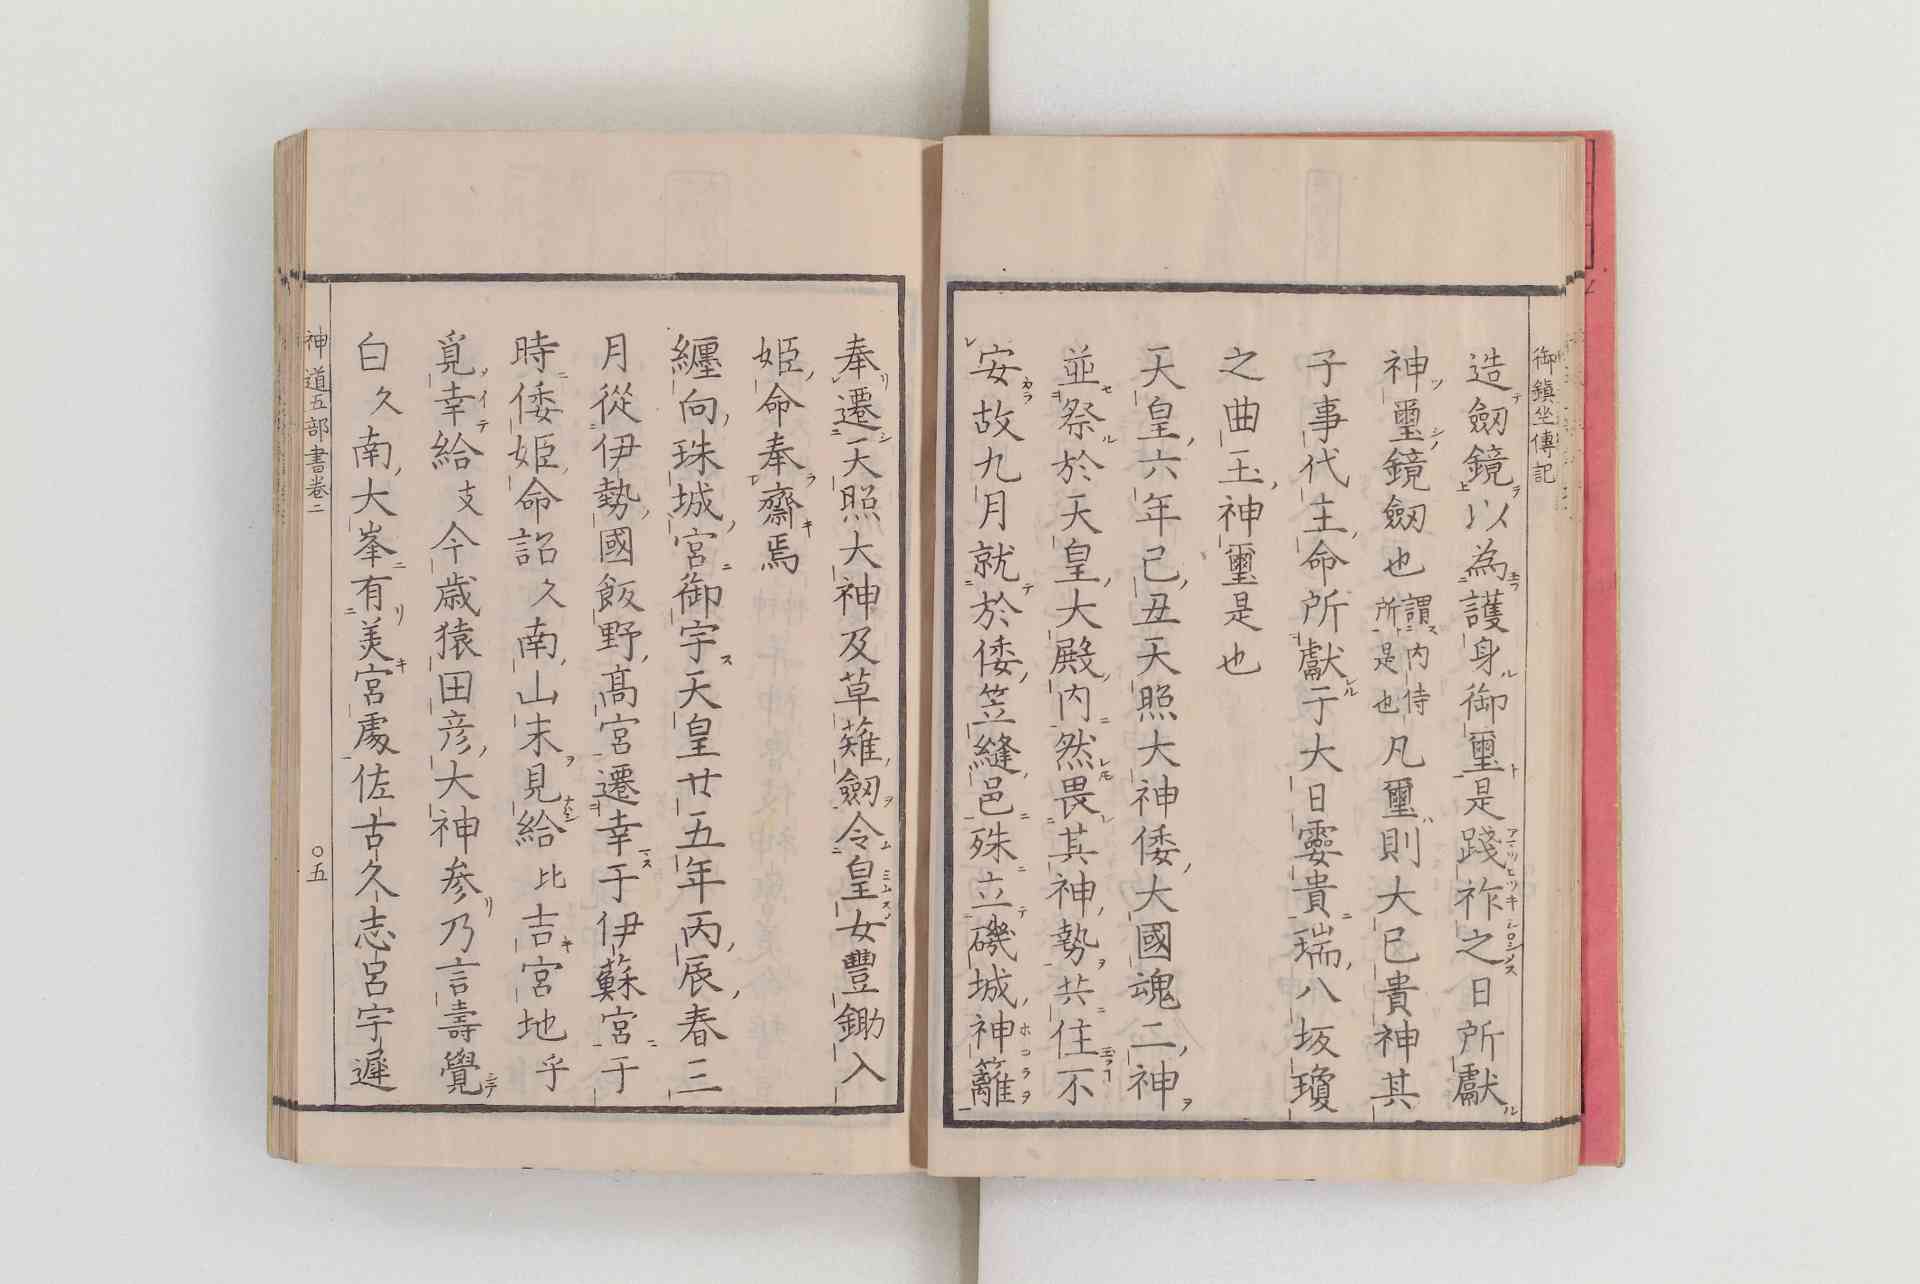 御鎮坐傳記
造劔鏡以為護身御璽是踐祚之日所獻
神璽鏡劔也謂内侍所是也凡璽則大已貴神其
子事代主命所獻于大日孁貴瑞八坂瓊
之曲玉神璽是也
天皇六年己丑天照大神倭大國魂二神
並祭於天皇大殿内然畏其神勢共住不
安故九月就於倭笠縫邑殊立磯城神籬
奉遷天照大神及草薙劔令皇女豐鋤入
姫命奉齋焉
纏向珠城宮御宇天皇廿五年丙辰春三
月從伊勢國飯野髙宮遷幸于伊蘇宮于
時倭姫命詔久南山末見給比吉宮地乎
覓幸給支今歳猿田彦大神参乃言壽覺
白久南大峯有美宮處佐古久志呂宇遲
神道五部書卷二
〇五